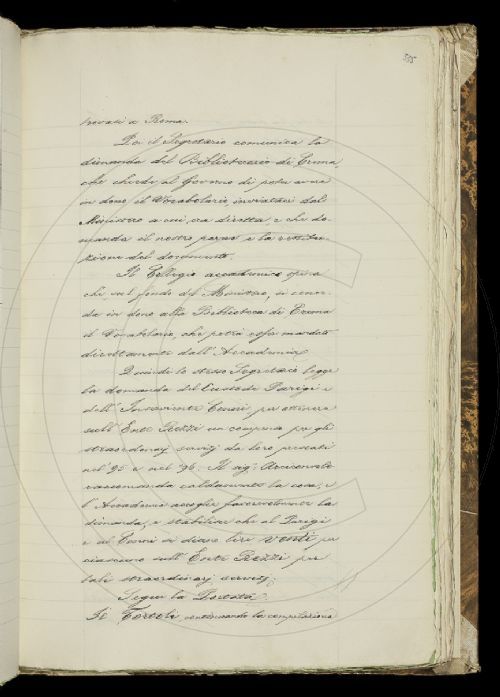 505
trovati a Roma.
Poi il Segretario comunica la
dimanda del Bibliotecario di
che chiede al Governo di poter avere
in dono il Vocabolario, inviataci dal
Ministero a cui era diretta, e che do-
manda il nostro parere e la restitu-
zione del documento.
Il Collegio accademico opina
che sul fondo del Ministero, si conce-
da in dono alla Biblioteca di
il Vocabolario, che potrà esser mandato
direttamente dall'Accademia.
Quindi lo stesso Segretario legge
la domanda del Custode Parigi e
dell' Inserviente per ottenere
sull' Ente Rezzi un compenso per gli
straordinarj servizj da loro prestati
nel '95 e nel '96. Il sig. Arciconsolo
raccomanda caldamente la cosa; e
l' Accademia accoglie favorevolmente la
dimanda, e stabilisce che al Parigi
e al si diano lire venti per
ciascuno sull' Ente Rezzi per
tali straordinarj servizj.
Segue la
Il Tortoli continuando la compilazione